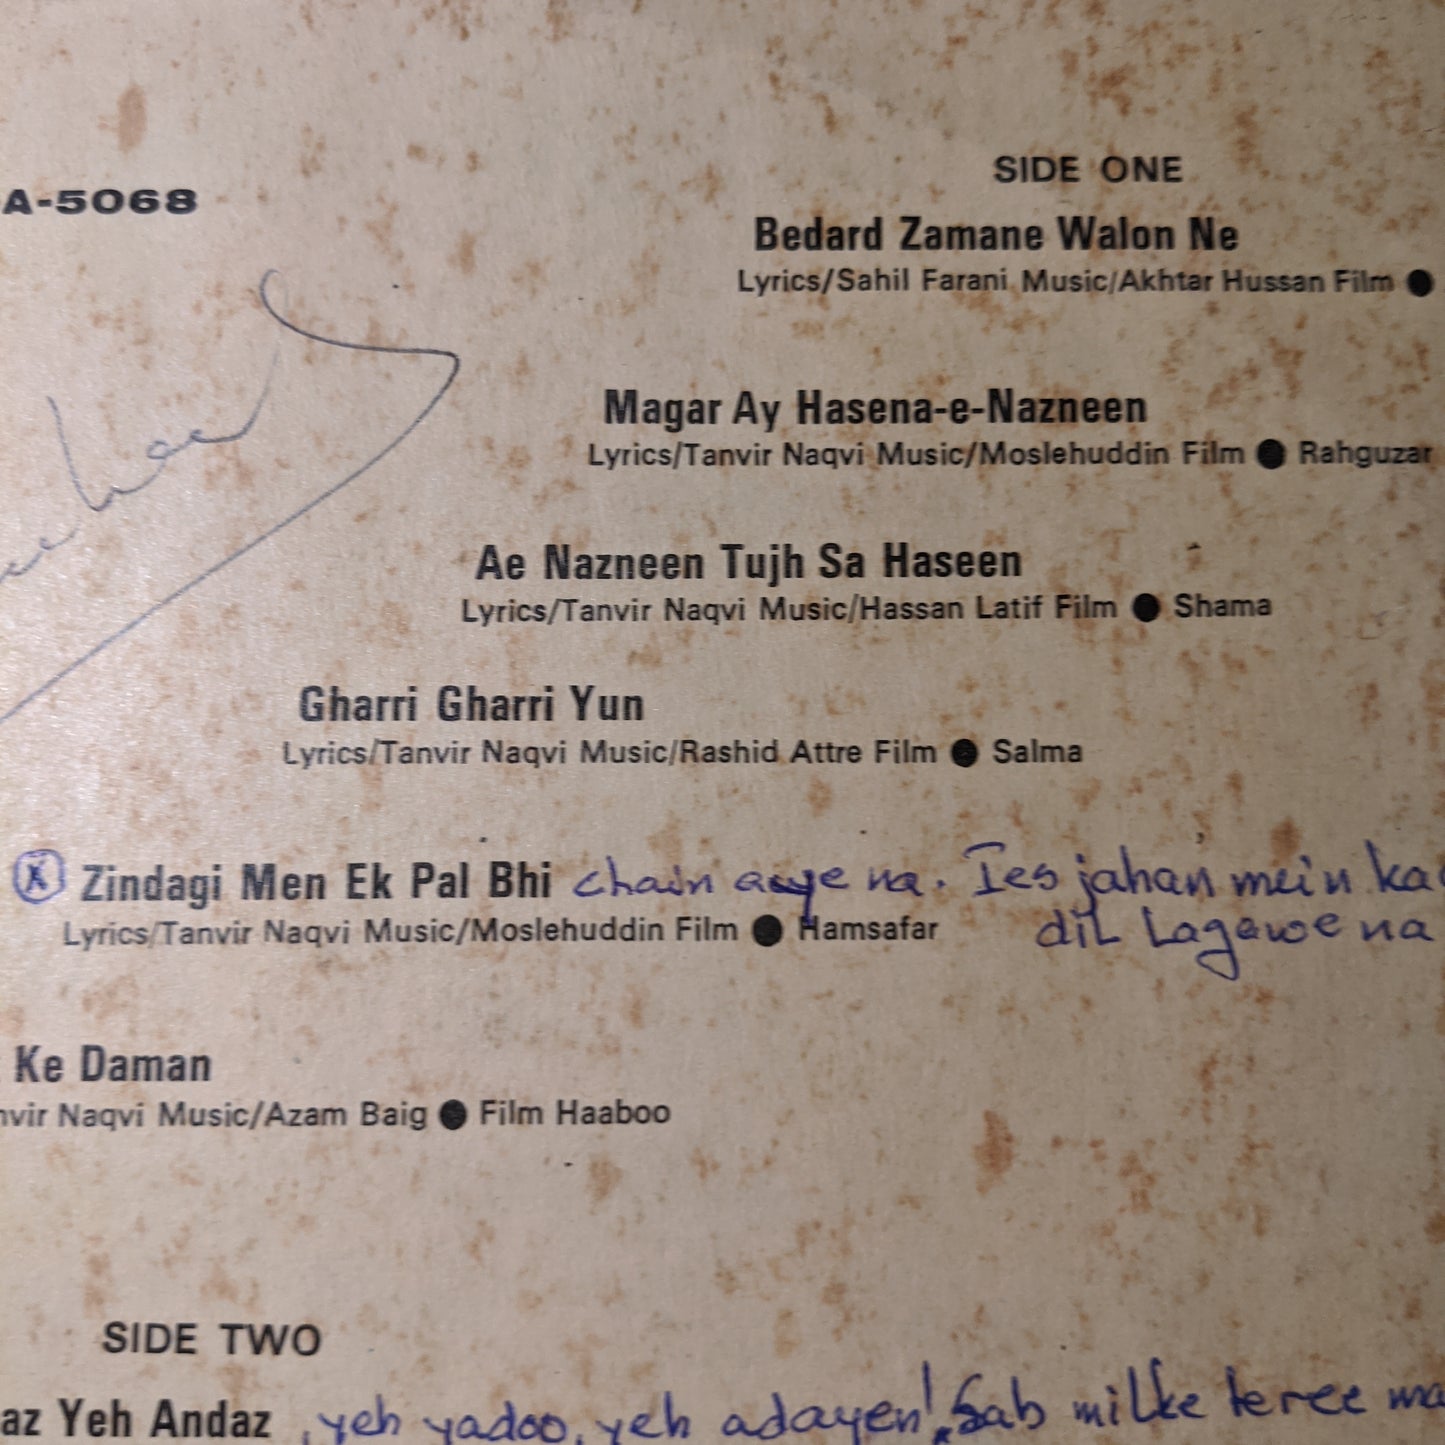 A-5068
SIDE ONE
Bedard Zamane Walon Ne
Lyrics/Sahil Farani Music/Akhtar Hussan Film ●
Magar Ay Hasena-e-Nazneen
Lyrics/Tanvir Naqvi Music/Moslehuddin Film ● Rahguzar
Ae Nazneen Tujh Sa Haseen
Lyrics/Tanvir Naqvi Music/Hassan Latif Film ● Shama
Gharri Gharri Yun
Lyrics/Tanvir Naqvi Music/Rashid Attre Film ● Salma
X Zindagi Men Ek Pal Bhi chain aaye na. Ies jahan mein ka
Lyrics/Tanvir Naqvi Music/Moslehuddin Film ● Hamsafar dil Lagawe na
Ke Daman
nvir Naqvi Music/Azam Baig ● Film Haaboo
SIDE TWO
az Yeh Andaz, yeh yadoo, yeh adayen! Sab milke teree ma